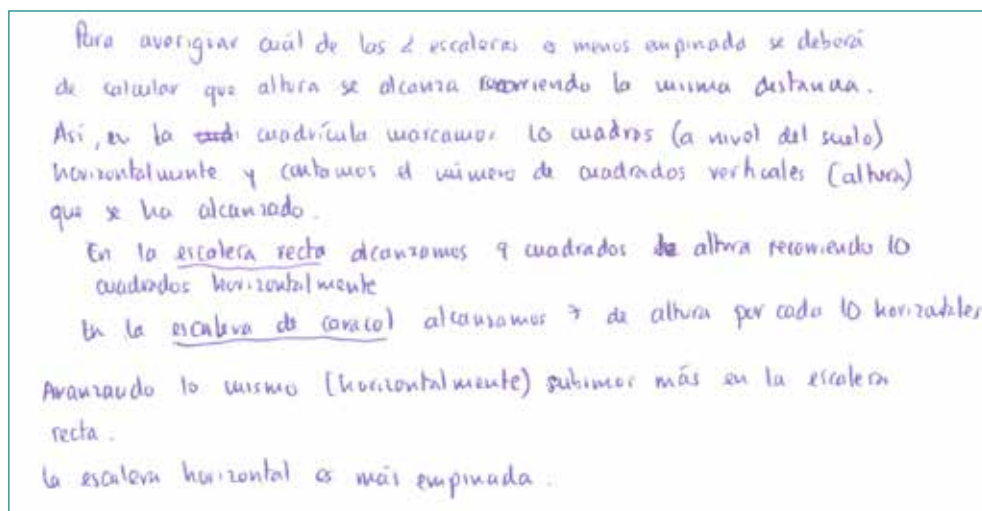 Para averiguar cuál de las 2 escaleras es menos empinada se deberá
de calcular que altura se alcanza recorriendo la misma distancia.
Así, en la cuadrícula marcamos 10 cuadros (a nivel del suelo)
horizontalmente y contamos el número de cuadrados verticales (altura)
que se ha alcanzado.
En la escalera recta alcanzamos 9 cuadrados de altura recorriendo 10
cuadrados horizontalmente
En la escalera de caracol alcanzamos 7 de altura por cada 10 horizontales
Avanzando lo mismo (horizontalmente) subimos más en la escalera
recta.
La escalera horizontal es más empinada.